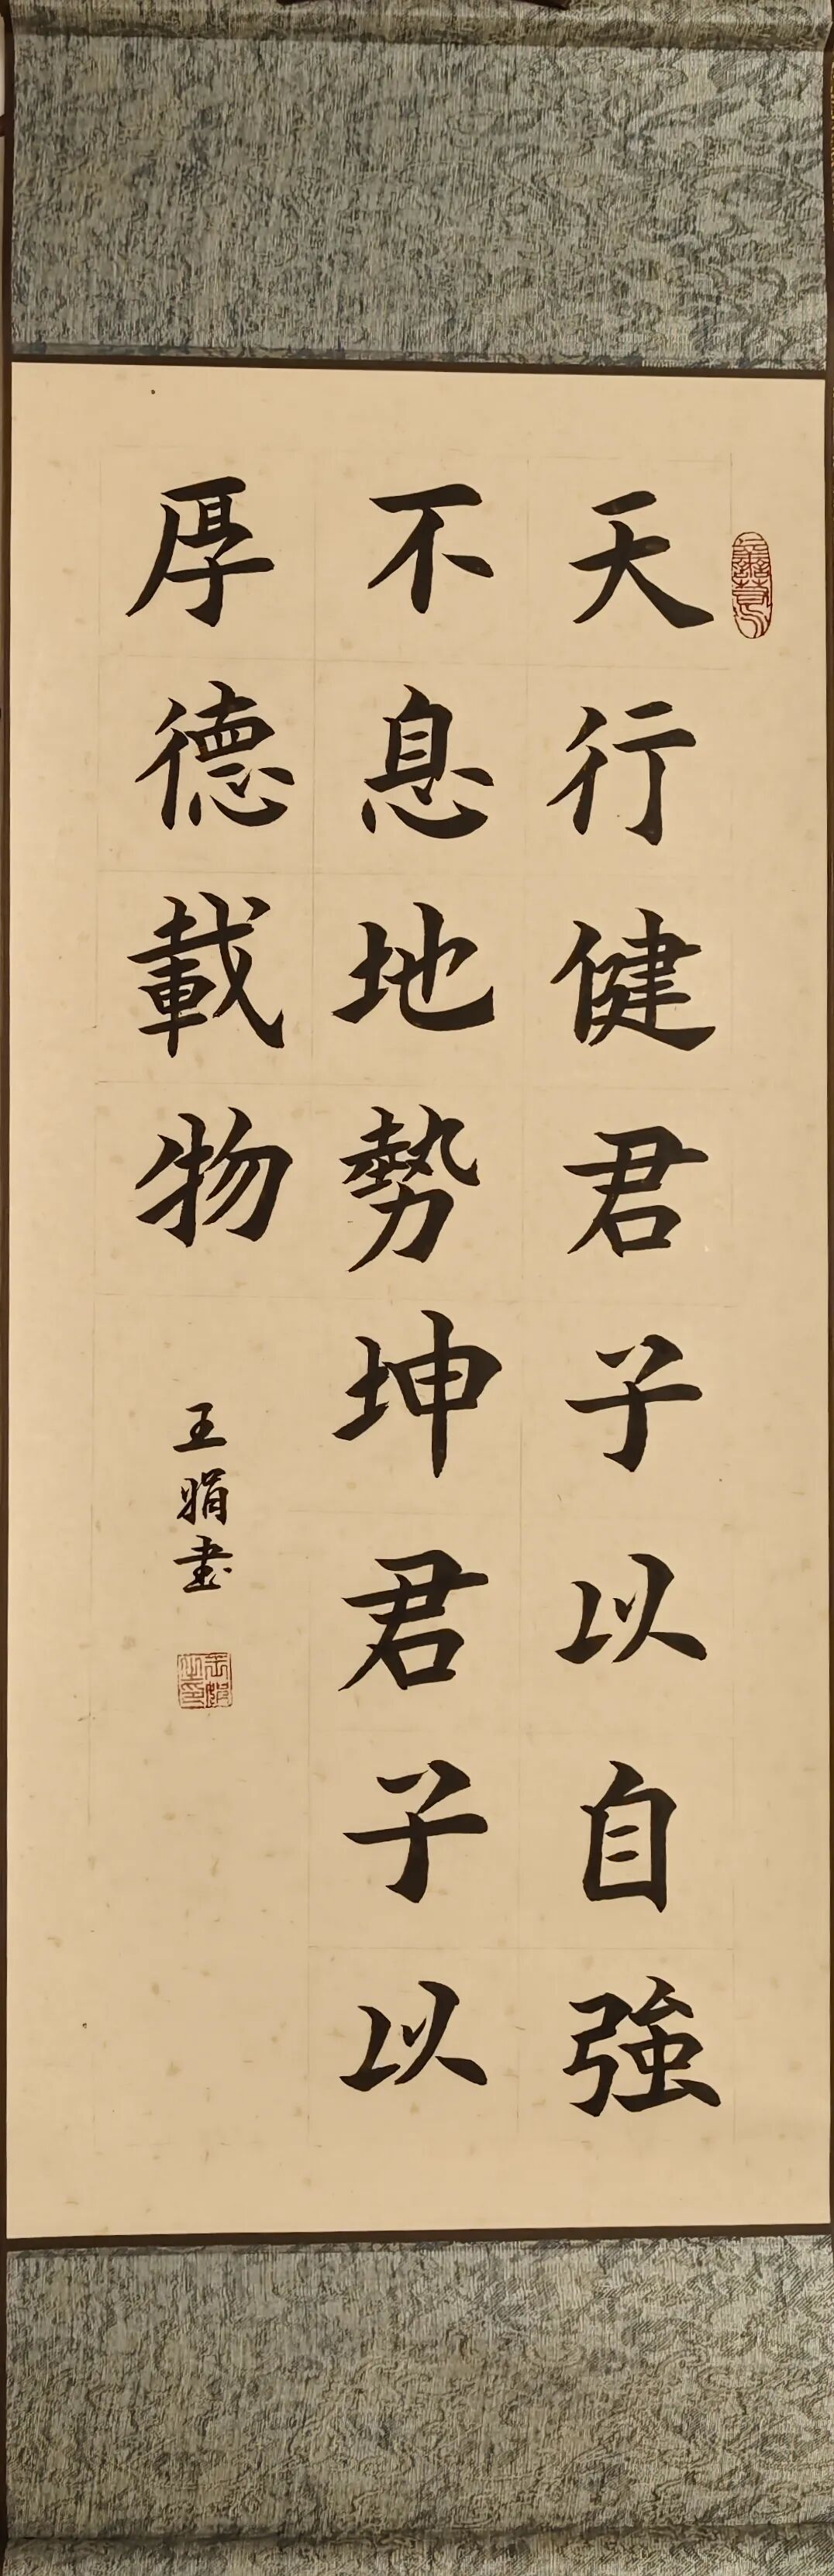 天行健君子以自強
不息地勢坤君子以
厚德載物
王娟書
王娟之印